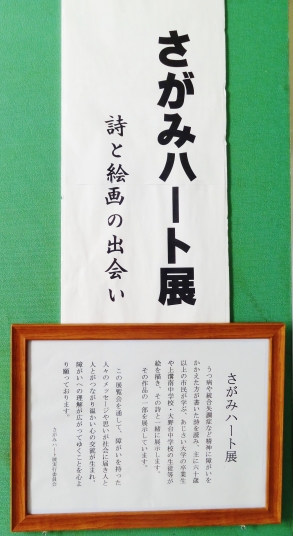 さがみハート展
詩と絵画の出会い
さがみハート展
うつ病や統合失調症など精神に障がいを
かかえた方が書いた詩を読み、主に六十歳
以上の市民が学ぶ、あじさい大学の卒業生
や上溝南中学校・大野台中学校の生徒等が
絵を描き、その詩と一緒に展示します。
その作品の一部を展示しています。
この展覧会を通して、障がいを持った
人々のメッセージや思いが社会に届き人と
人とがつながり温かい心の交流が生まれ、
障がいへの理解が広がってゆくことを心よ
り願っております。
さがみハート展実行委員会